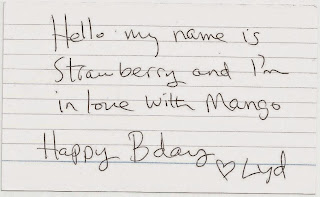 Hello my name is
Strawberry and I'm
in love with Mango
Happy Bday
♡ Lyd